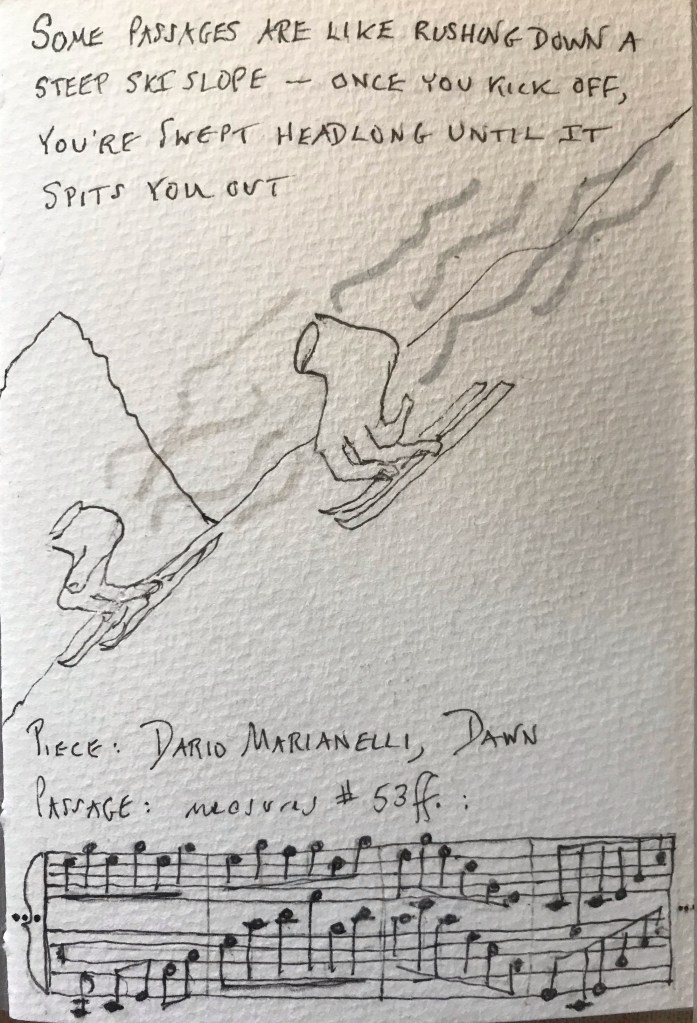 SOME PASSAGES ARE LIKE RUSHING DOWN A
STEEP SKI SLOPE — ONCE YOU KICK OFF,
YOU'RE SWEPT HEADLONG UNTIL IT
SPITS YOU OUT
PIECE: DARIO MARIANELLI, DAWN
PASSAGE: measures # 53ff. :